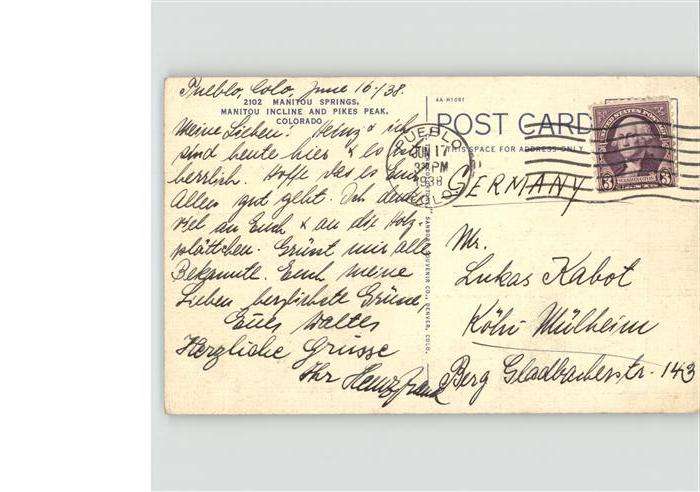 Pueblo, Colo, June 16./38.
2102 MANITOU SPRINGS,
MANITOU INCLINE AND PIKES PEAK,
COLORADO
Meine Lieben! Heinz & ich
sind heute hier & es ist
herrlich. Hoffe das es Euch
Allen gut geht. Ich denke
viel an Euch & an die Holz-
plättchen. Grüsst mir alle
Bekannte. Euch meine
Lieben herzlichste Grüsse,
Euer Walter
Herzliche Grüsse
Ihr Heinz Frank
6A-H1061
POST CARD
THIS SPACE FOR ADDRESS ONLY
PUEBLO
JUN 17
PM
1938
COLO.
UNITED STATES POSTAGE
WASHINGTON
3 3
SANBORN SOUVENIR CO., DENVER, COLO.
GERMANY
Mr.
Lukas Kabot
Köln Mülheim
Berg Gladbacherstr. 143